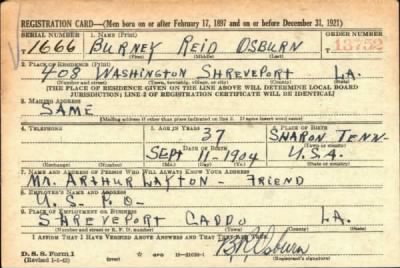 REGISTRATION CARD—(Men born on or after February 17, 1897 and on or before December 31, 1921)
SERIAL NUMBER 1. NAME (Print) ORDER NUMBER
T1666 BURNEY REID OSBURN
(First) (Middle) (Last)
2. PLACE OF RESIDENCE (Print)
408 WASHINGTON SHREVEPORT LA.
(Number and street) (Town, township, village, or city) (County) (State)
[THE PLACE OF RESIDENCE GIVEN ON THE LINE ABOVE WILL DETERMINE LOCAL BOARD
JURISDICTION; LINE 2 OF REGISTRATION CERTIFICATE WILL BE IDENTICAL]
3. MAILING ADDRESS
SAME
[Mailing address if other than place indicated on line 2. If same insert word same]
4. TELEPHONE 5. AGE IN YEARS 6. PLACE OF BIRTH
37 SHARON TENN-
DATE OF BIRTH (Town or county)
SEPT 11-1904 U.S.A.
(Exchange) (Number) (Mo.) (Day) (Yr.) (State or country)
7. NAME AND ADDRESS OF PERSON WHO WILL ALWAYS KNOW YOUR ADDRESS
MR. ARTHUR LAYTON - FRIEND
8. EMPLOYER'S NAME AND ADDRESS
U.S. P.O-
9. PLACE OF EMPLOYMENT OR BUSINESS
SHREVEPORT CADDO LA.
(Number and street or R. F. D. number) (Town) (County) (State)
I AFFIRM THAT I HAVE VERIFIED ABOVE ANSWERS AND THAT THEY ARE TRUE.
D. S. S. Form 1
(Revised 1-1-42) (over) GPO 16—21630-1 B.R.Osburn
(Registrant's signature)